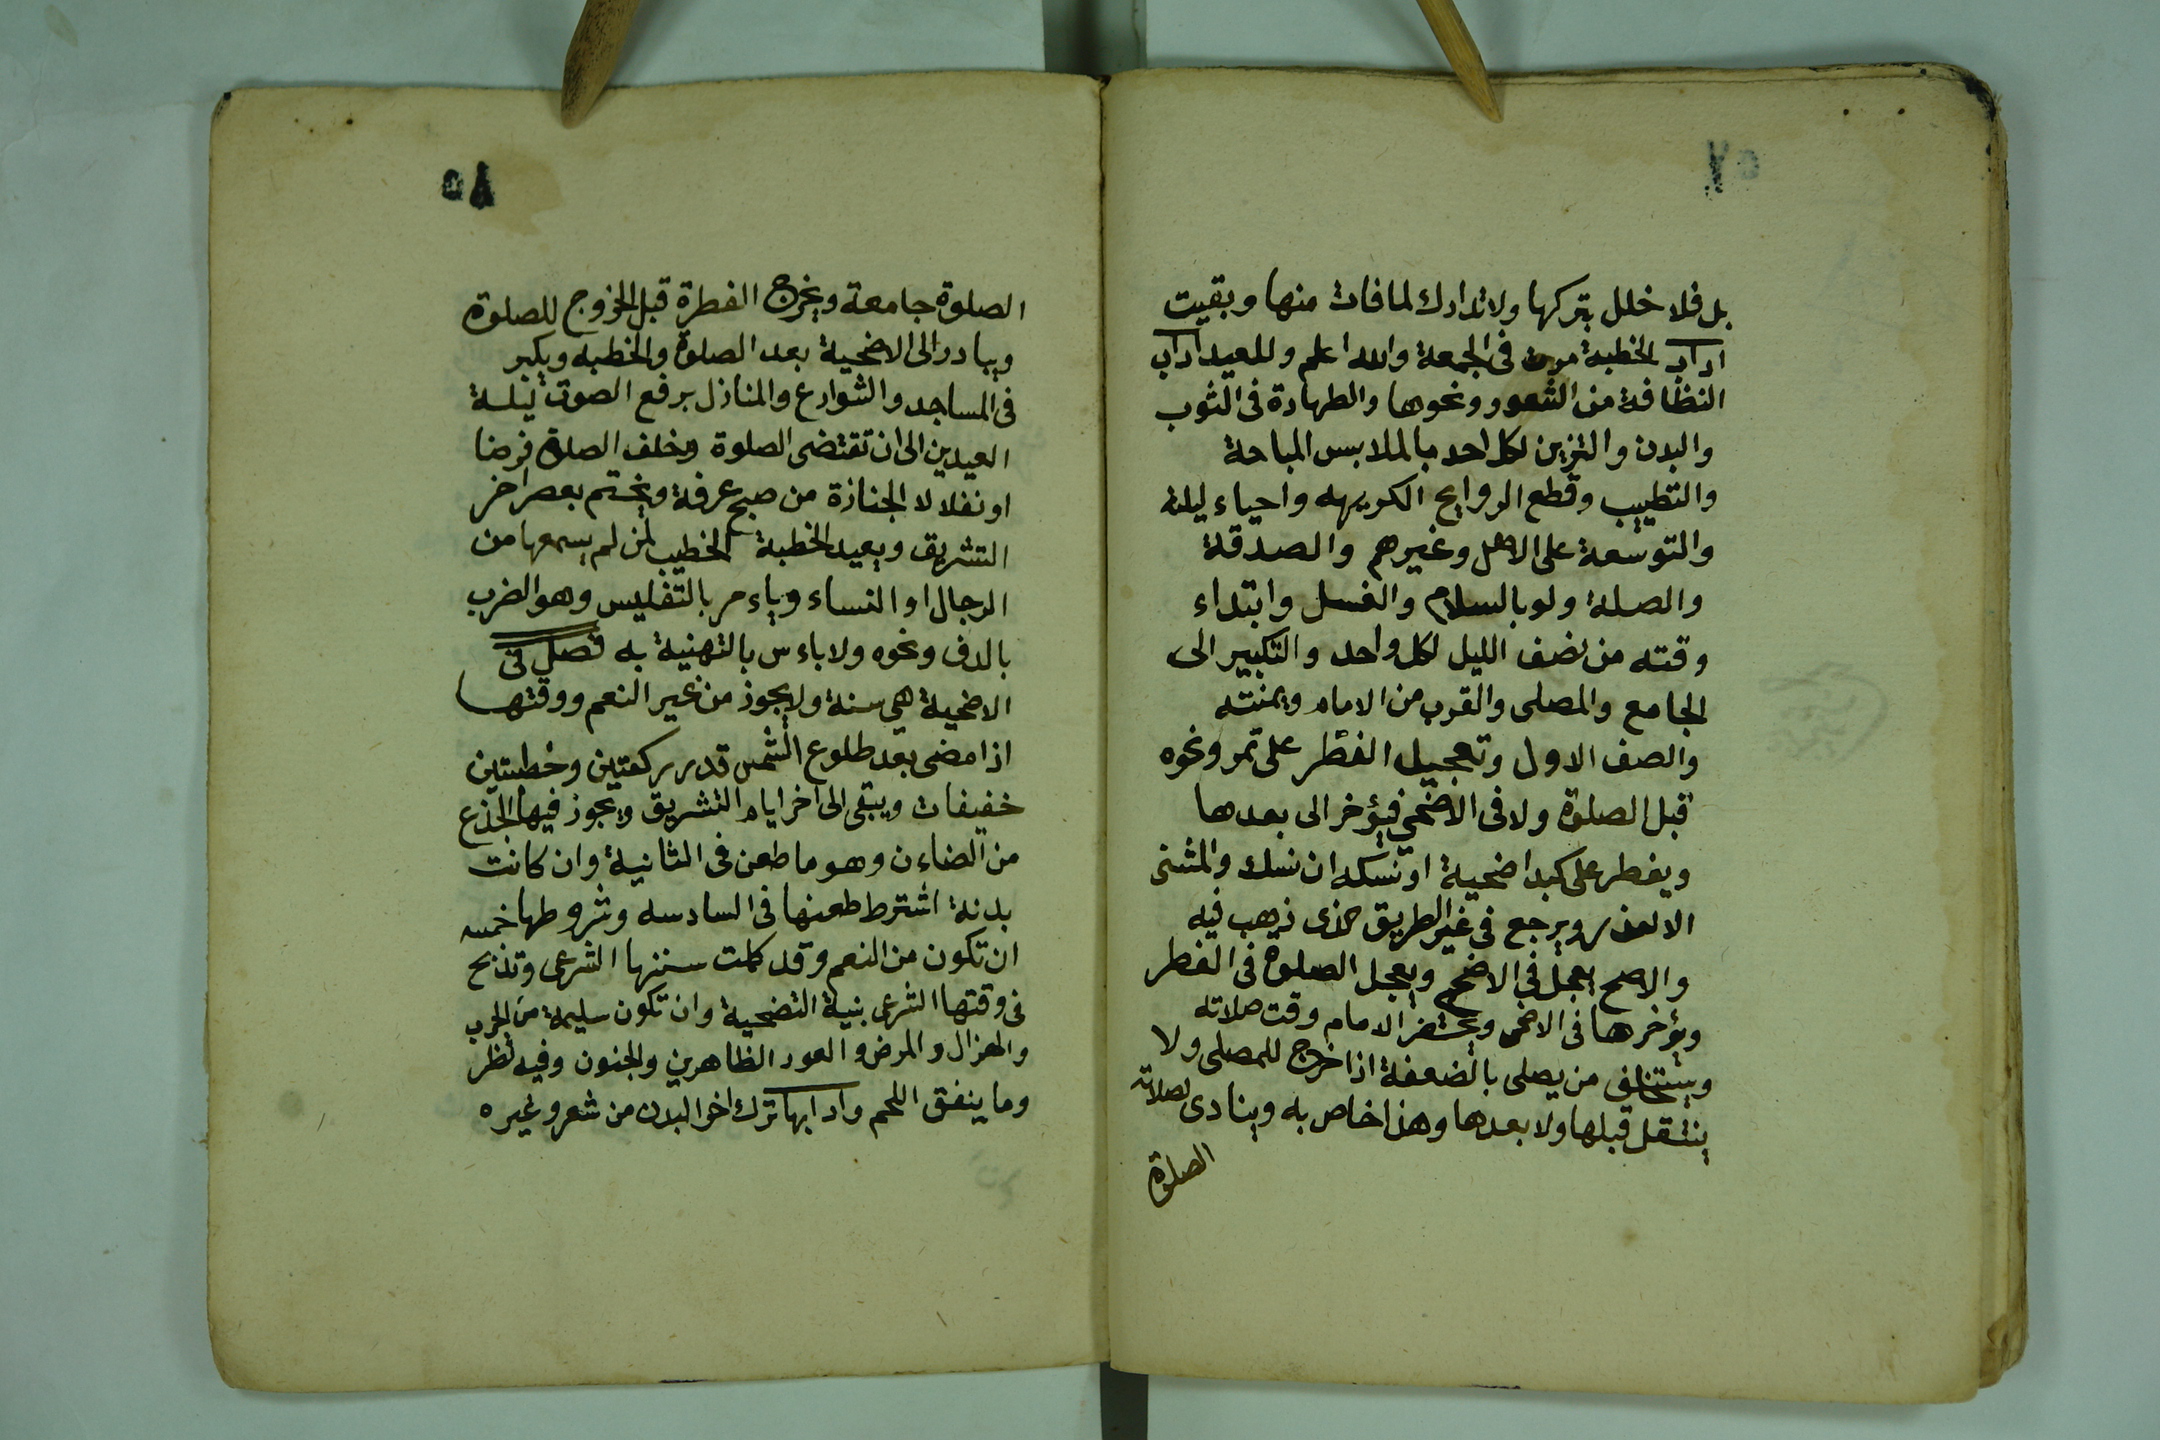 ٥٧
بل فلا خلل بتركها ولا تدارك لما فات منها وبقيت
اداب الخطبة مرت فى الجمعة والله اعلم وللعيد اداب
النظافة من الشعور ونحوها والطهارة فى الثوب
والبدن والتزين لكل احد بالملابس المباحة
والتطيب وقطع الروايح الكريهه واحياء ليلته
والتوسعة على الاهل وغيرهم والصدقة
والصلة ولو بالسلام والغسل وابتداء
وقته من نصف الليل لكل واحد والتكبير الى
الجامع والمصلى والقرب من الامام ويمنته
والصف الاول وتعجيل الفطر على تمر ونحوه
قبل الصلوة ولا فى الاضحى فيؤخر الى بعدها
ويفطر على كبد اضحية او نسكه ان نسك والمشى
الا لعذر ويرجع فى غير الطريق الذى ذهب فيه
والاصح يعجل فى الاضحى ويعجل الصلوة فى الفطر
ويؤخرها فى الاضحى ويحتضر الامام وقت صلاته
ويستخلف من يصلى بالضعفة اذا خرج للمصلى ولا
يتنفل قبلها ولا بعدها وهذا خاص به وينادى لصلاته
الصلوة
٥٨
الصلوة جامعة ويخرج الفطرة قبل الخروج للصلوة
ويبادر الى الاضحية بعد الصلوة والخطبه ويكبر
فى المساجد والشوارع والمنازل برفع الصوت ليلة
العيدين الى ان تقتضى الصلوة وخلف الصلوة فرضا
او نفلا لا الجنازة من صبح عرفة ويختم بعصر اخر
التشريق ويعيد الخطبة الخطيب لمن لم يسمعها من
الرجال او النساء وياءمر بالتفليس وهو الضرب
بالدف ونحوه ولا باءس بالتهنية به فصل فى
الاضحية هي سنة ولا يجوز من غير النعم ووقتها
اذا مضى بعد طلوع الشمس قدر ركعتين وخطبتين
خفيفات ويبقى الى اخر ايام التشريق ويجوز فيها الجذع
من الضاءن وهو ما طعن فى الثانية وان كانت
بدنة اشترط طعنها فى السادسه وشروطها خمسه
ان تكون من النعم وقد كملت سننها الشرعى وتذبح
فى وقتها الشرعى بنية التضحية وان تكون سليمة من الجرب
والهزال والمرض والعور الظاهرين والجنون وفيه نظر
وما ينفق اللحم وادابها ترك اخو البدن من شعر وغيره